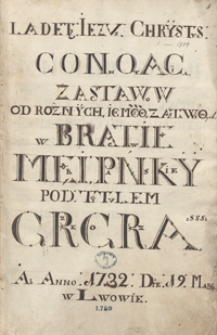 LADETE IEZV: CHRYSTS:
CONGAC.
ZASTAW W
OD ROZNYCH, IC MCC, ZATWO:
w BRATIE
MEIPNKY
POD TTLEM
GRGRA
S.S.S:
A: ANNO 1732 DIE 19 MAR:
w LWOWIE.
1780